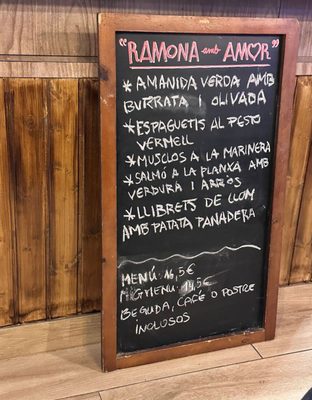 "RAMONA amb AMOR"
* AMANIDA VERDA AMB
BURRATA I OLIVADA
* ESPAGUETIS AL PESTO
VERMELL
* MUSCLOS A LA MARINERA
* SALMÓ A LA PLANXA AMB
VERDURA I ARRÒS
* LLIBRETS DE LLOM
AMB PATATA PANADERA
MENÚ: 16,5€
MIG MENU: 14,5€
BEGUDA, CAFÉ O POSTRE
INCLOSOS